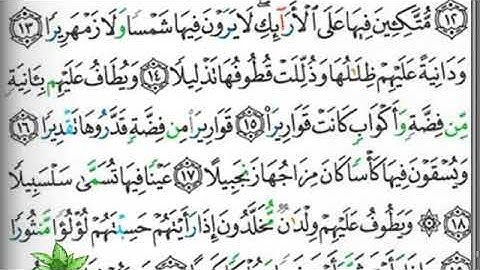 ١٢ مُّتَّكِـِٔينَ فِيهَا عَلَى ٱلْأَرَآئِكِ ۖ لَا يَرَوْنَ فِيهَا شَمْسًا وَلَا زَمْهَرِيرًا ١٣
وَدَانِيَةً عَلَيْهِمْ ظِلَـٰلُهَا وَذُلِّلَتْ قُطُوفُهَا تَذْلِيلًا ١٤ وَيُطَافُ عَلَيْهِم بِـَٔانِيَةٍ
مِّن فِضَّةٍ وَأَكْوَابٍ كَانَتْ قَوَارِيرَا۠ ١٥ قَوَارِيرَا۟ مِن فِضَّةٍ قَدَّرُوهَا تَقْدِيرًا ١٦
وَيُسْقَوْنَ فِيهَا كَأْسًا كَانَ مِزَاجُهَا زَنجَبِيلًا ١٧ عَيْنًا فِيهَا تُسَمَّىٰ سَلْسَبِيلًا
١٨ ۞ وَيَطُوفُ عَلَيْهِمْ وِلْدَٰنٌ مُّخَلَّدُونَ إِذَا رَأَيْتَهُمْ حَسِبْتَهُمْ لُؤْلُؤًا مَّنثُورًا